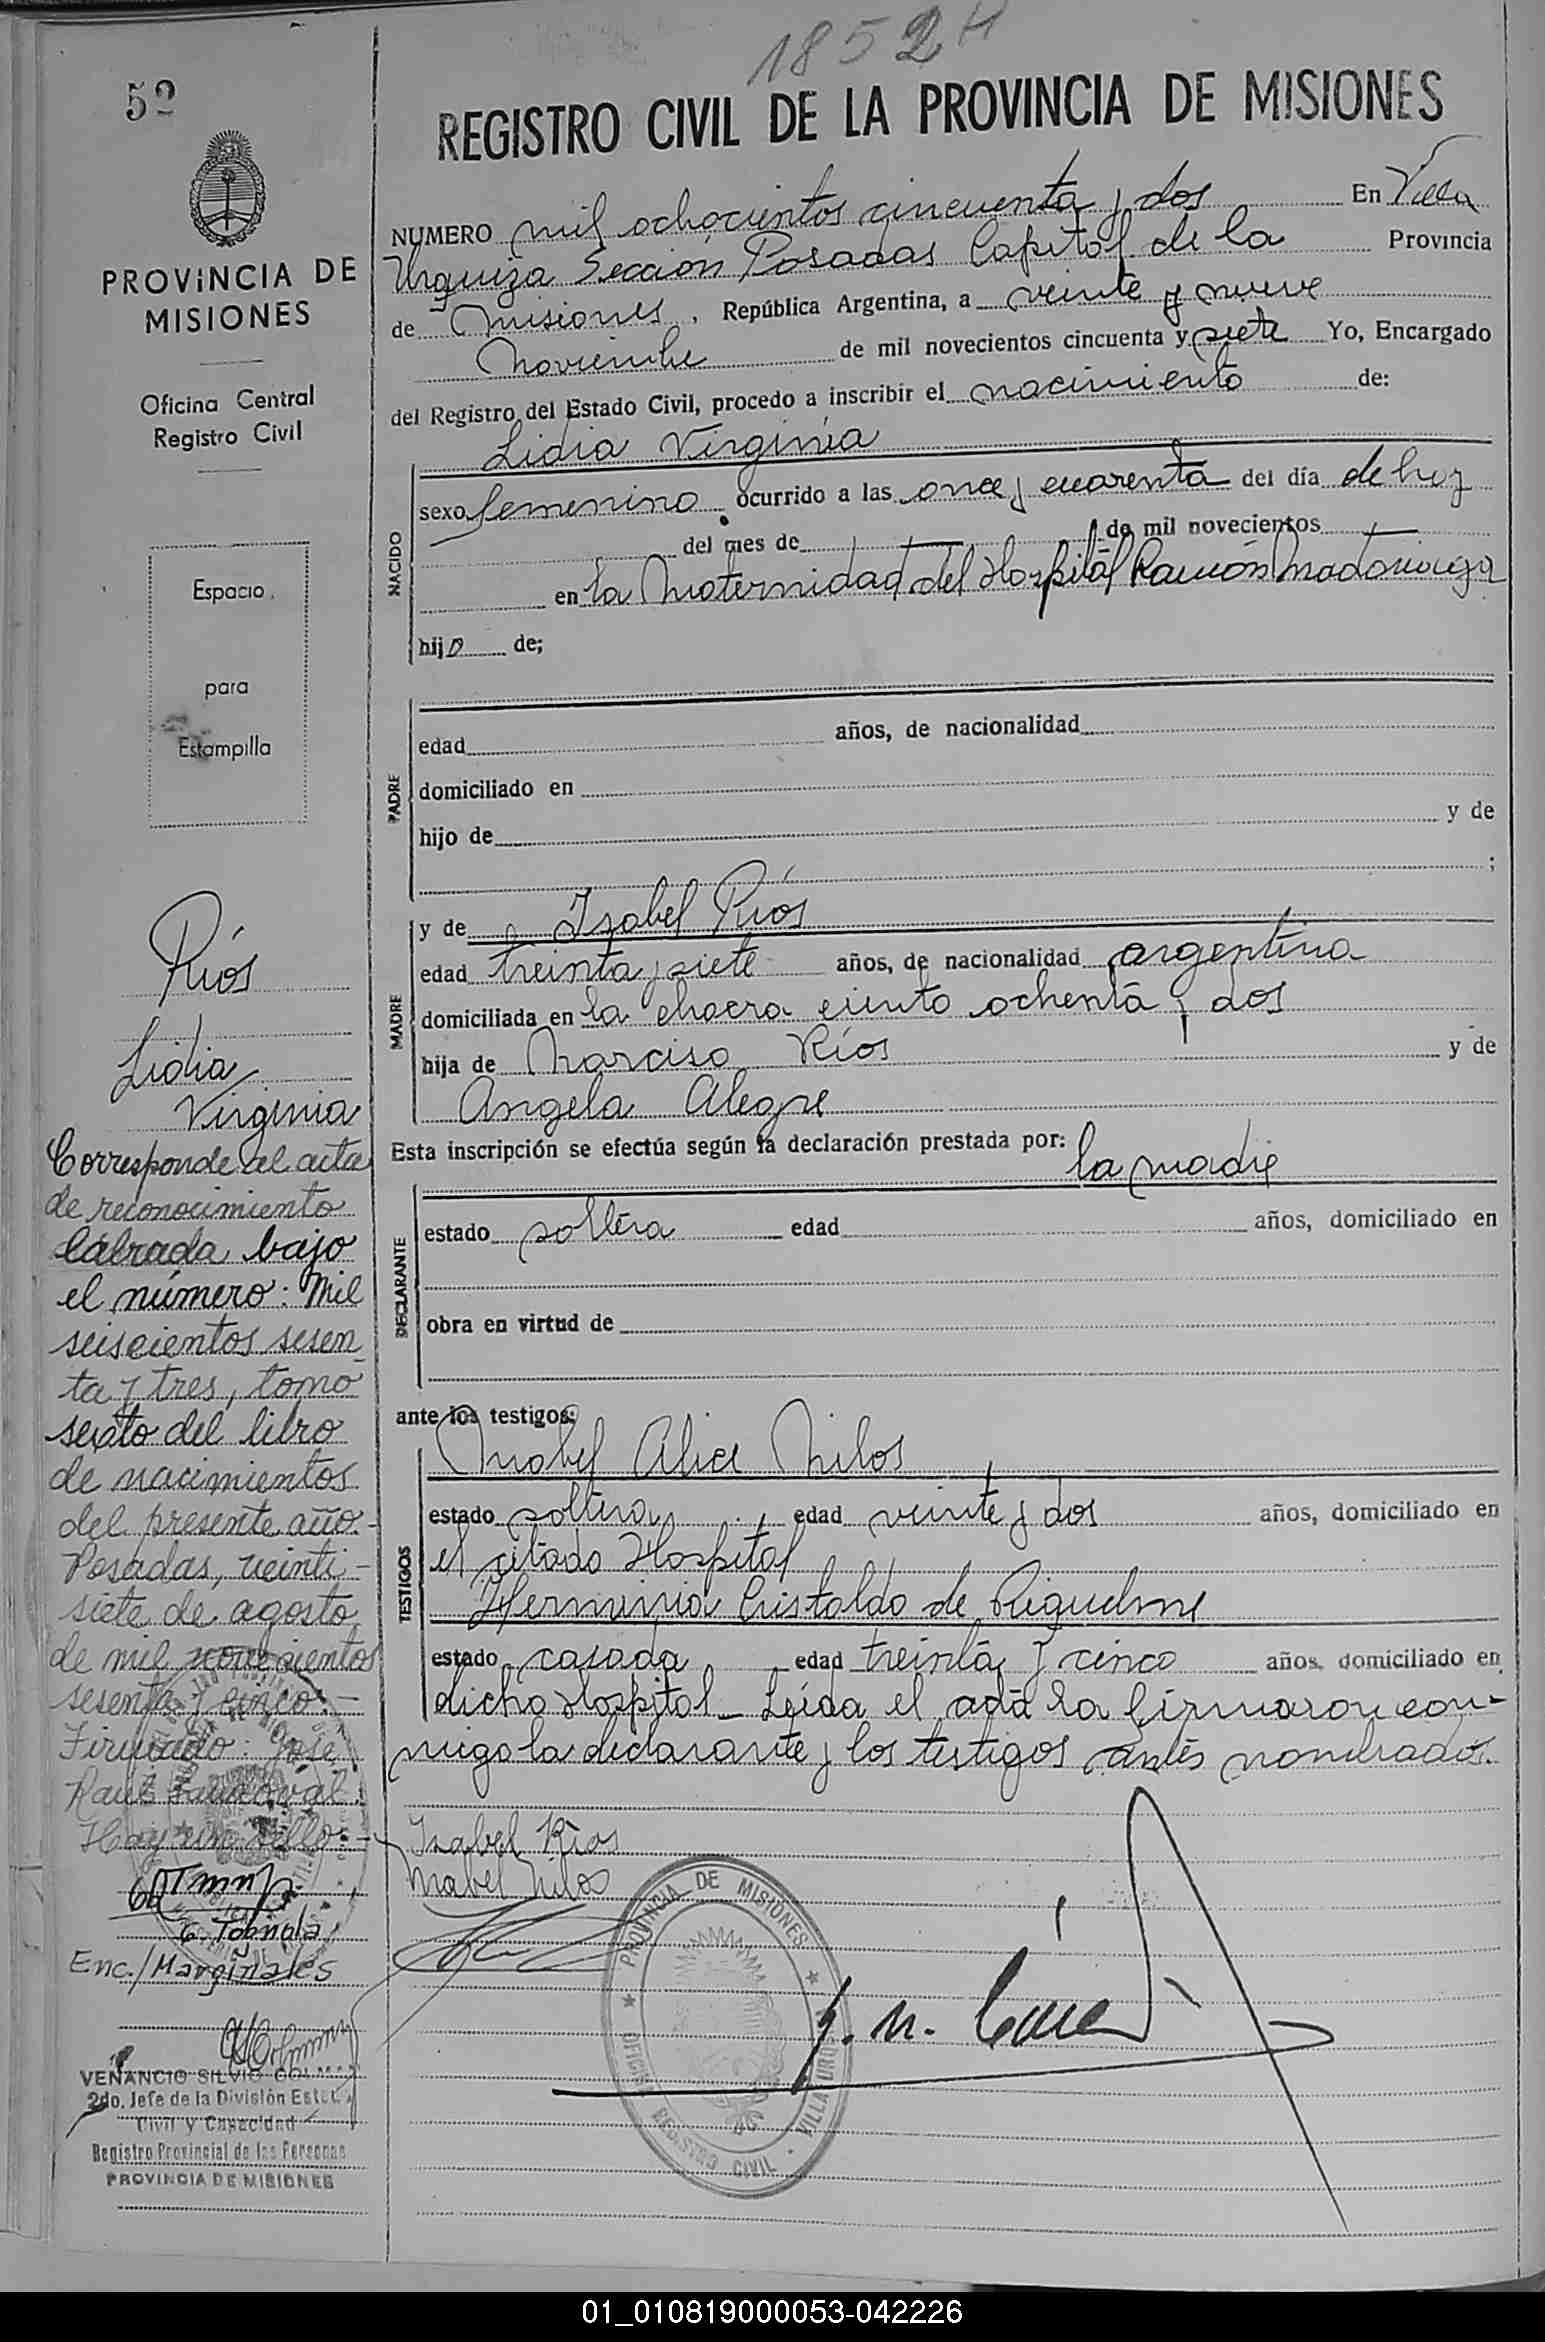 1852 H
52
REGISTRO CIVIL DE LA PROVINCIA DE MISIONES
PROVINCIA DE
MISIONES
Oficina Central
Registro Civil
Espacio
para
Estampilla
NUMERO mil ochocientos cincuenta y dos En Villa
Urquiza Sección Posadas Capital de la Provincia
de Misiones, República Argentina, a veinte y nueve
Noviembre de mil novecientos cincuenta y siete Yo, Encargado
del Registro del Estado Civil, procedo a inscribir el nacimiento de:
Lidia Virginia
NACIDO
sexo femenino ocurrido a las once y cuarenta del día de hoy
del mes de de mil novecientos
en la Maternidad del Hospital Ramón Madariaga
hijo de;
PADRE
edad años, de nacionalidad
domiciliado en
hijo de y de
;
MADRE
y de Isabel Ríos
edad treinta y siete años, de nacionalidad argentina
domiciliada en la chacra ciento ochenta y dos
hija de Narciso Ríos y de
Angela Alegre
Esta inscripción se efectúa según la declaración prestada por: la madre
DECLARANTE
estado soltera edad años, domiciliado en
obra en virtud de
ante los testigos:
TESTIGOS
Mabel Alice Nilos
estado soltera edad veinte y dos años, domiciliado en
el citado Hospital
Herminia Cristaldo de Riquelme
estado casada edad treinta y cinco años, domiciliado en
dicho Hospital - Leída el acta la firmaron con-
migo la declarante y los testigos antes nombrados.
Isabel Ríos
Mabel Nilos
PROVINCIA DE MISIONES
OFICINA REGISTRO CIVIL
VILLA URQUIZA
Ríos
Lidia
Virginia
Corresponde al acta
de reconocimiento
labrada bajo
el número: Mil
seiscientos sesen
ta y tres, tomo
sexto del libro
de nacimientos
del presente año.-
Posadas, veinti-
siete de agosto
de mil novecientos
sesenta y cinco.-
Firmado: José
Raul Sandoval.
Hay un sello.-
Enc./Marginales
VENANCIO SILVIO COLMAN
2do. Jefe de la División Estado
Civil y Capacidad
Registro Provincial de las Personas
PROVINCIA DE MISIONES
01_010819000053-042226